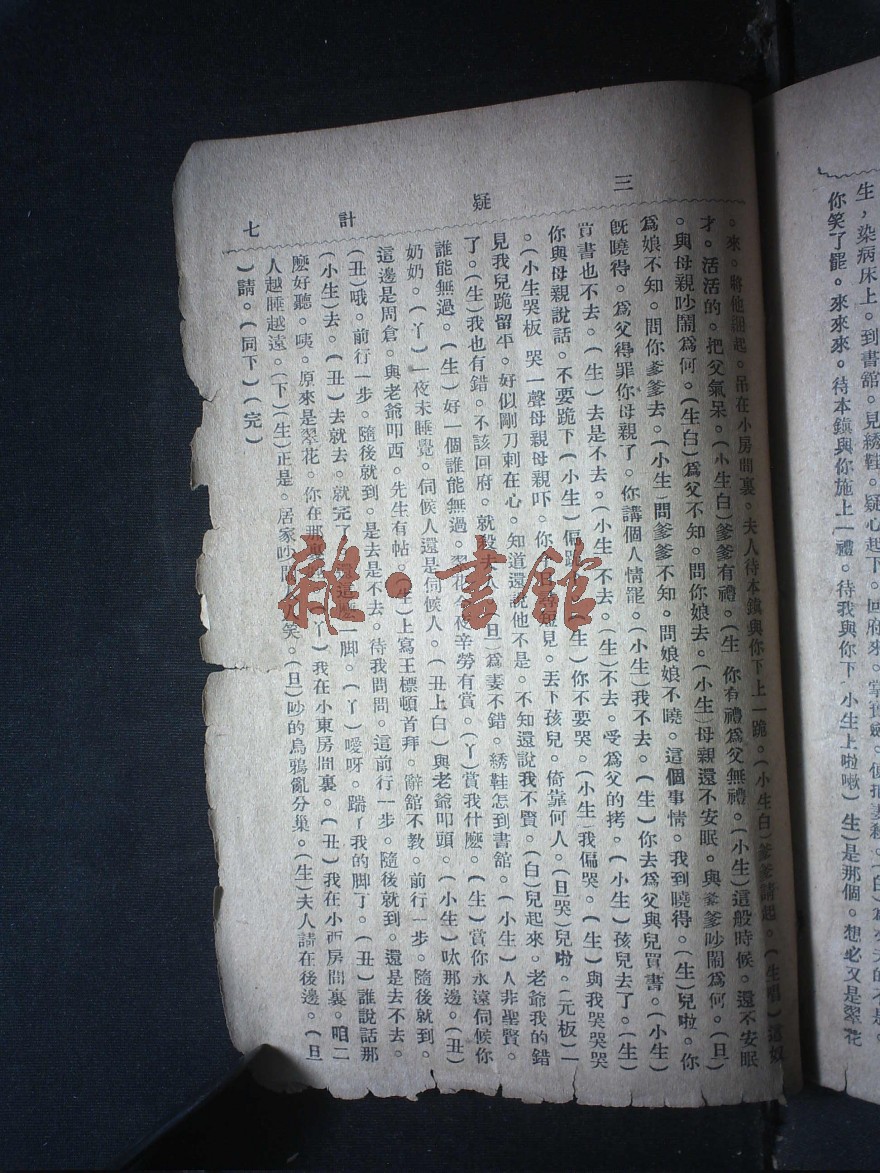 生，染病床上。到書舘。見綉鞋。疑心起下。回府來。掌寶劍。
你笑了罷。來來來。待本鎮與你施上一禮。待我與你下 小生上啦嗽）生）是那個。想必又是翠花
三 疑 計 七
。來。將他 起。吊在小房間裏。夫人待本鎮與你下上一跪。（小生白）爹爹請起。（生唱）這奴
才。活活的。把父氣呆。（小生白）爹爹有禮。（生 你有禮爲父無禮。（小生）這般時候。還不安眠
。與母親吵鬧爲何。（生白）爲父不知。問你娘去。（小生）母親還不安眠。與爹爹吵鬧爲何。（旦）
爲娘不知。問你爹爹去。（小生）問爹爹不知。問娘娘不曉。這個事情。我到曉得。（生）兒啦。你
旣曉得。爲父得罪你母親了。你講個人情罷。（小生）我不去。（生）你去爲父與兒買書。（小生）
買書也不去。（生）去是不去。（小生 不去。（生）不去。受爲父的拷。（小生）孩兒去了。（生）
你與母親說話。不要跪下（小生）偏跪 （生）你不要哭。（小生）我偏哭。（生）與我哭哭哭
。（小生哭板 哭一聲母親母親吓。你 見。丟下孩兒。倚靠何人。（旦哭）兒啦。（元板）一
見我兒跪留平。好似剛刀刺在心。知道還說他不是。不知還說我不賢。（白）兒起來。老爺我的錯
了。（生）我也有錯。不該回府。就殺夫人 （旦）爲妻不錯。綉鞋怎到書舘。（小生）人非聖賢。
誰能無過。（生）好一個誰能無過。翠花 夜辛勞有賞。（丫）賞我什麽。（生）賞你永遠伺候你
奶奶。（丫）一夜未睡覺。伺候人還是伺候人。（丑上白）與老爺叩頭。（小生）呔那邊。（丑）
這邊是周倉。與老爺叩西。先生有帖。（生）上寫王標頓首拜。辭舘不教。前行一步。隨後就到。
（丑）哦。前行一步。隨後就到。是去是不去。待我問問。這前行一步。隨後就到。還是去不去。
（小生）去。（丑）去就去。就完了 這麽一脚。（丫）噯呀。踹了我的脚了。（丑）誰說話那
麽好聽。咦。原來是翠花。你在那 （丫）我在小東房間裏。（丑）我在小西房間裏。咱二
人越睡越遠。（下）（生）正是。居家吵鬧 人笑。（旦）吵的烏鴉亂分巢。（生）夫人請在後邊。（旦
）請。（同下）（完）
雜·書館